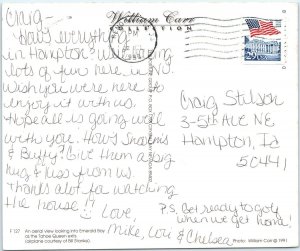 Craig -
William Carr
COLLECTION
How's everything
in Hampton? We're having
lots of fun here in NV.
Wish you were here to
enjoy it with us.
Hope all is going well
with you. How's
& Buffy? Give them a big
hug & kiss from us.
Thanks alot for watching
the house!
Love,
Mike, Lori & Chelsea
Craig Stilson
3-5th Ave NE
Hampton, Ia
50441
P.S. Get ready to golf
when we get home!
F 127 An aerial view looking into Emerald Bay
as the Tahoe Queen exits
(airplane courtesy of Bill Starke)
Photo: William Carr © 1991